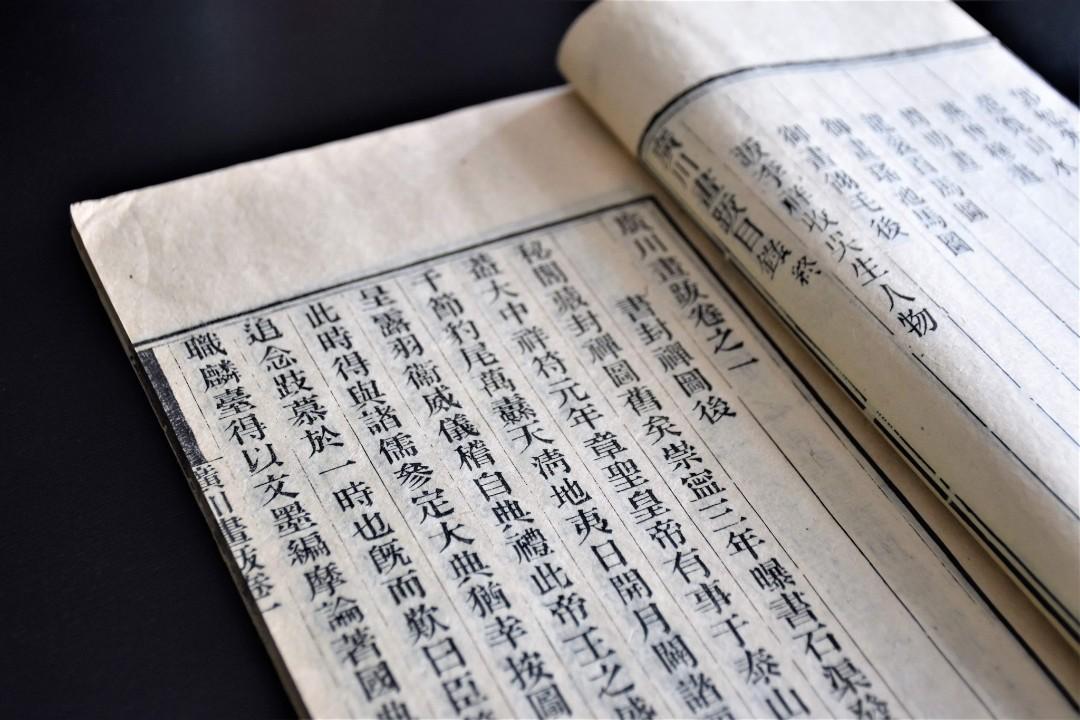 御畫翎毛後
跋李祥收吳生人物
廣川畫跋目錄終
廣川畫跋卷之二
書封禪圖後
秘閣藏封禪圖舊矣崇寧三年曝書石渠發
蓋大中祥符元年章聖皇帝有事于泰山
千節豹尾萬纛天清地夷日開月闢諸
呈露羽衞威儀稽自典禮此帝王之盛
此時得與諸儒參定大典猶幸按圖
追念跂慕於一時也旣而歎曰臣
職麟臺得以文墨編摩論著國典
廣川畫跋卷一